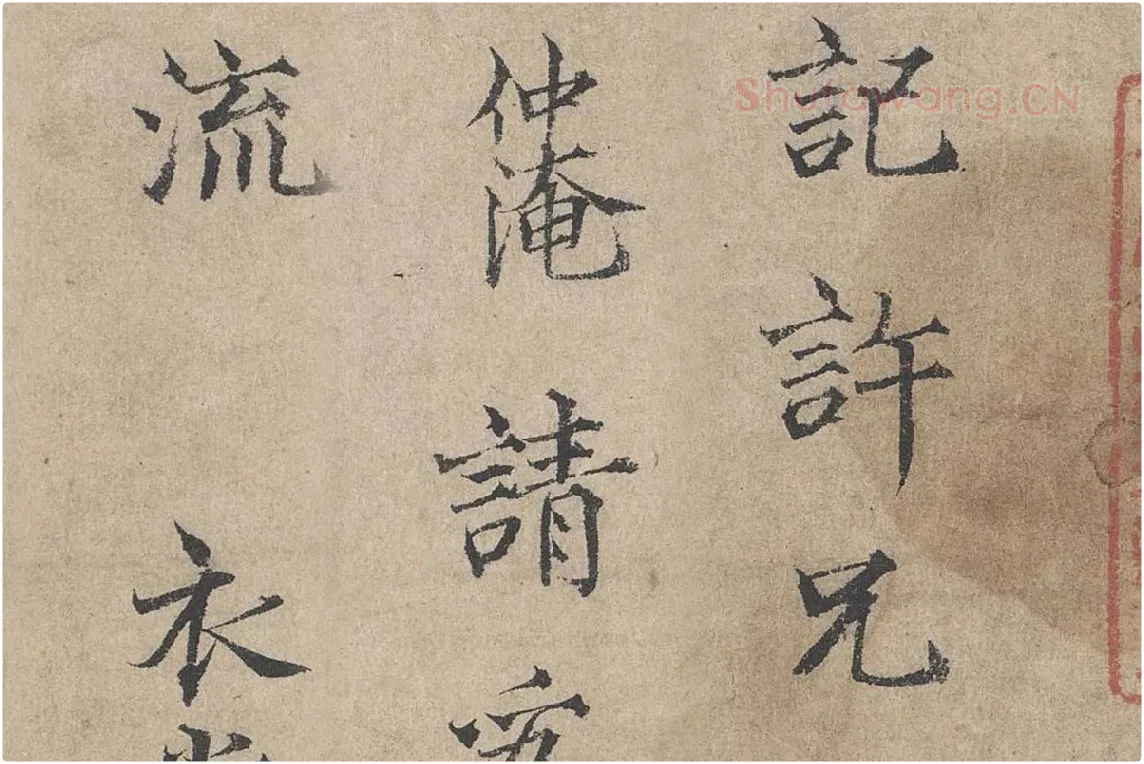 記許兄
仲淹請
流衣
Shufawang.CN